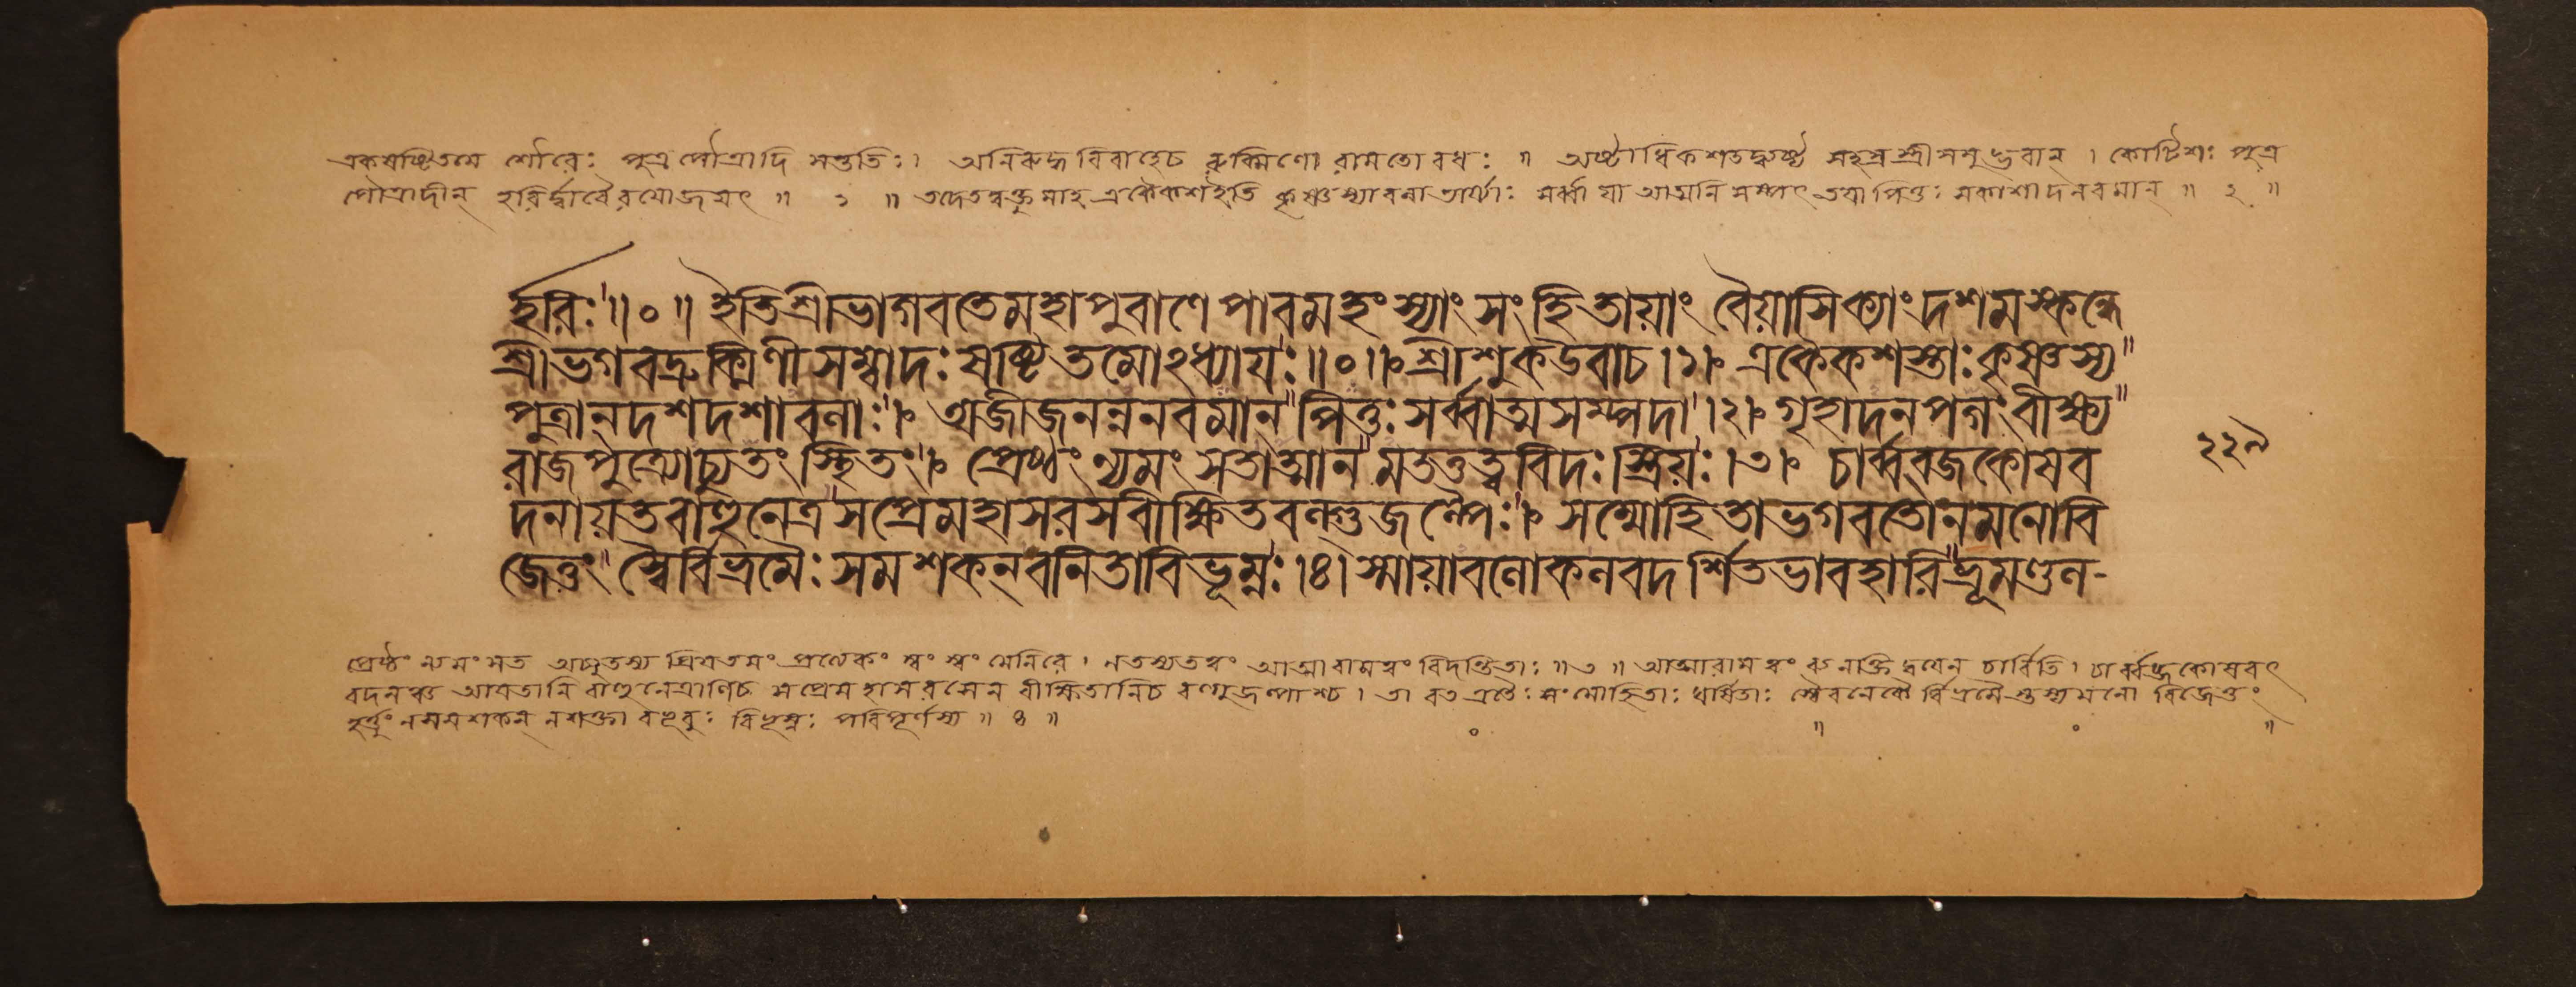 একষষ্টিতমে শৌরেঃ পুত্রপৌত্রাদি সন্ততিঃ। অনিরুদ্ধবিবাহেচ রুক্মিণো রামতো বধঃ ॥ অষ্টাধিকশতদ্ব্যষ্ট সহস্রস্ত্রীসমুদ্ভবান্ । কোটিশঃ পুত্র
পৌত্রাদীন্ হরির্দ্দারৈরযোজয়ৎ ॥ ১ ॥ তদেতদ্বক্তুমাহ একৈকশইতি কৃষ্ণস্যাবলা ভার্য্যাঃ সর্ব্বা যা আত্মনি সম্পৎ তয়া পিতুঃ সকাশাদনবমান্ ॥ ২ ॥
র্হরিঃ ॥০॥ ইতিশ্রীভাগবতেমহাপুরাণে পারমহংস্যাং সংহিতায়াং বৈয়াসিক্যাং দশমস্কন্ধে
শ্রীভগবদ্রুক্মিণীসম্বাদঃ ষষ্টিতমোঽধ্যায়ঃ ॥০॥ শ্রীশুকউবাচ ।১। একৈকশস্তাঃ কৃষ্ণস্য
পুত্রান্দশদশাবলাঃ । অজীজনন্ননবমান্ পিতুঃ সর্ব্বাত্মসম্পদা ।২। গৃহাদনপগং বীক্ষ্য
রাজপুত্র্যোচ্যুতং স্থিতং । প্রেষ্ঠং ন্যমংসতাত্মান মতত্তত্ত্ববিদঃ স্ত্রিয়ঃ ।৩। চার্ব্বব্জকোষব
দনায়তবাহুনেত্র সপ্রেমহাসরসবীক্ষিতবল্গুজল্পৈঃ । সম্মোহিতাভগবতোনমনোবি
জেতুং স্বৈর্বিভ্রমৈঃ সমশকন্বনিতাবিভূম্নঃ ।৪। স্মায়াবলোকলবদর্শিতভাবহারি ভ্রূমণ্ডল-
২২৯
প্রেষ্ঠং ন্যমংসত অচ্যুতস্য প্রিয়তমং প্রত্যেকং স্বং স্বং মেনিরে । নতস্যতত্ত্বং আত্মারামত্বং বিদন্তিতাঃ ॥৩॥ আত্মারামত্বং ব্যনক্তি দ্বয়েন চার্বিতি । চার্ব্বব্জকোষবৎ
বদনঞ্চ আয়তানি বাহুনেত্রাণিচ সপ্রেমহাসরসেন বীক্ষিতানিচ বল্গুজল্পাশ্চ । তা সংমোহিতাঃ বিজেতুং
নসমশকন্ নশক্তা বভূবুঃ বিভূম্নঃ পরিপূর্ণস্য ॥ ৪ ॥